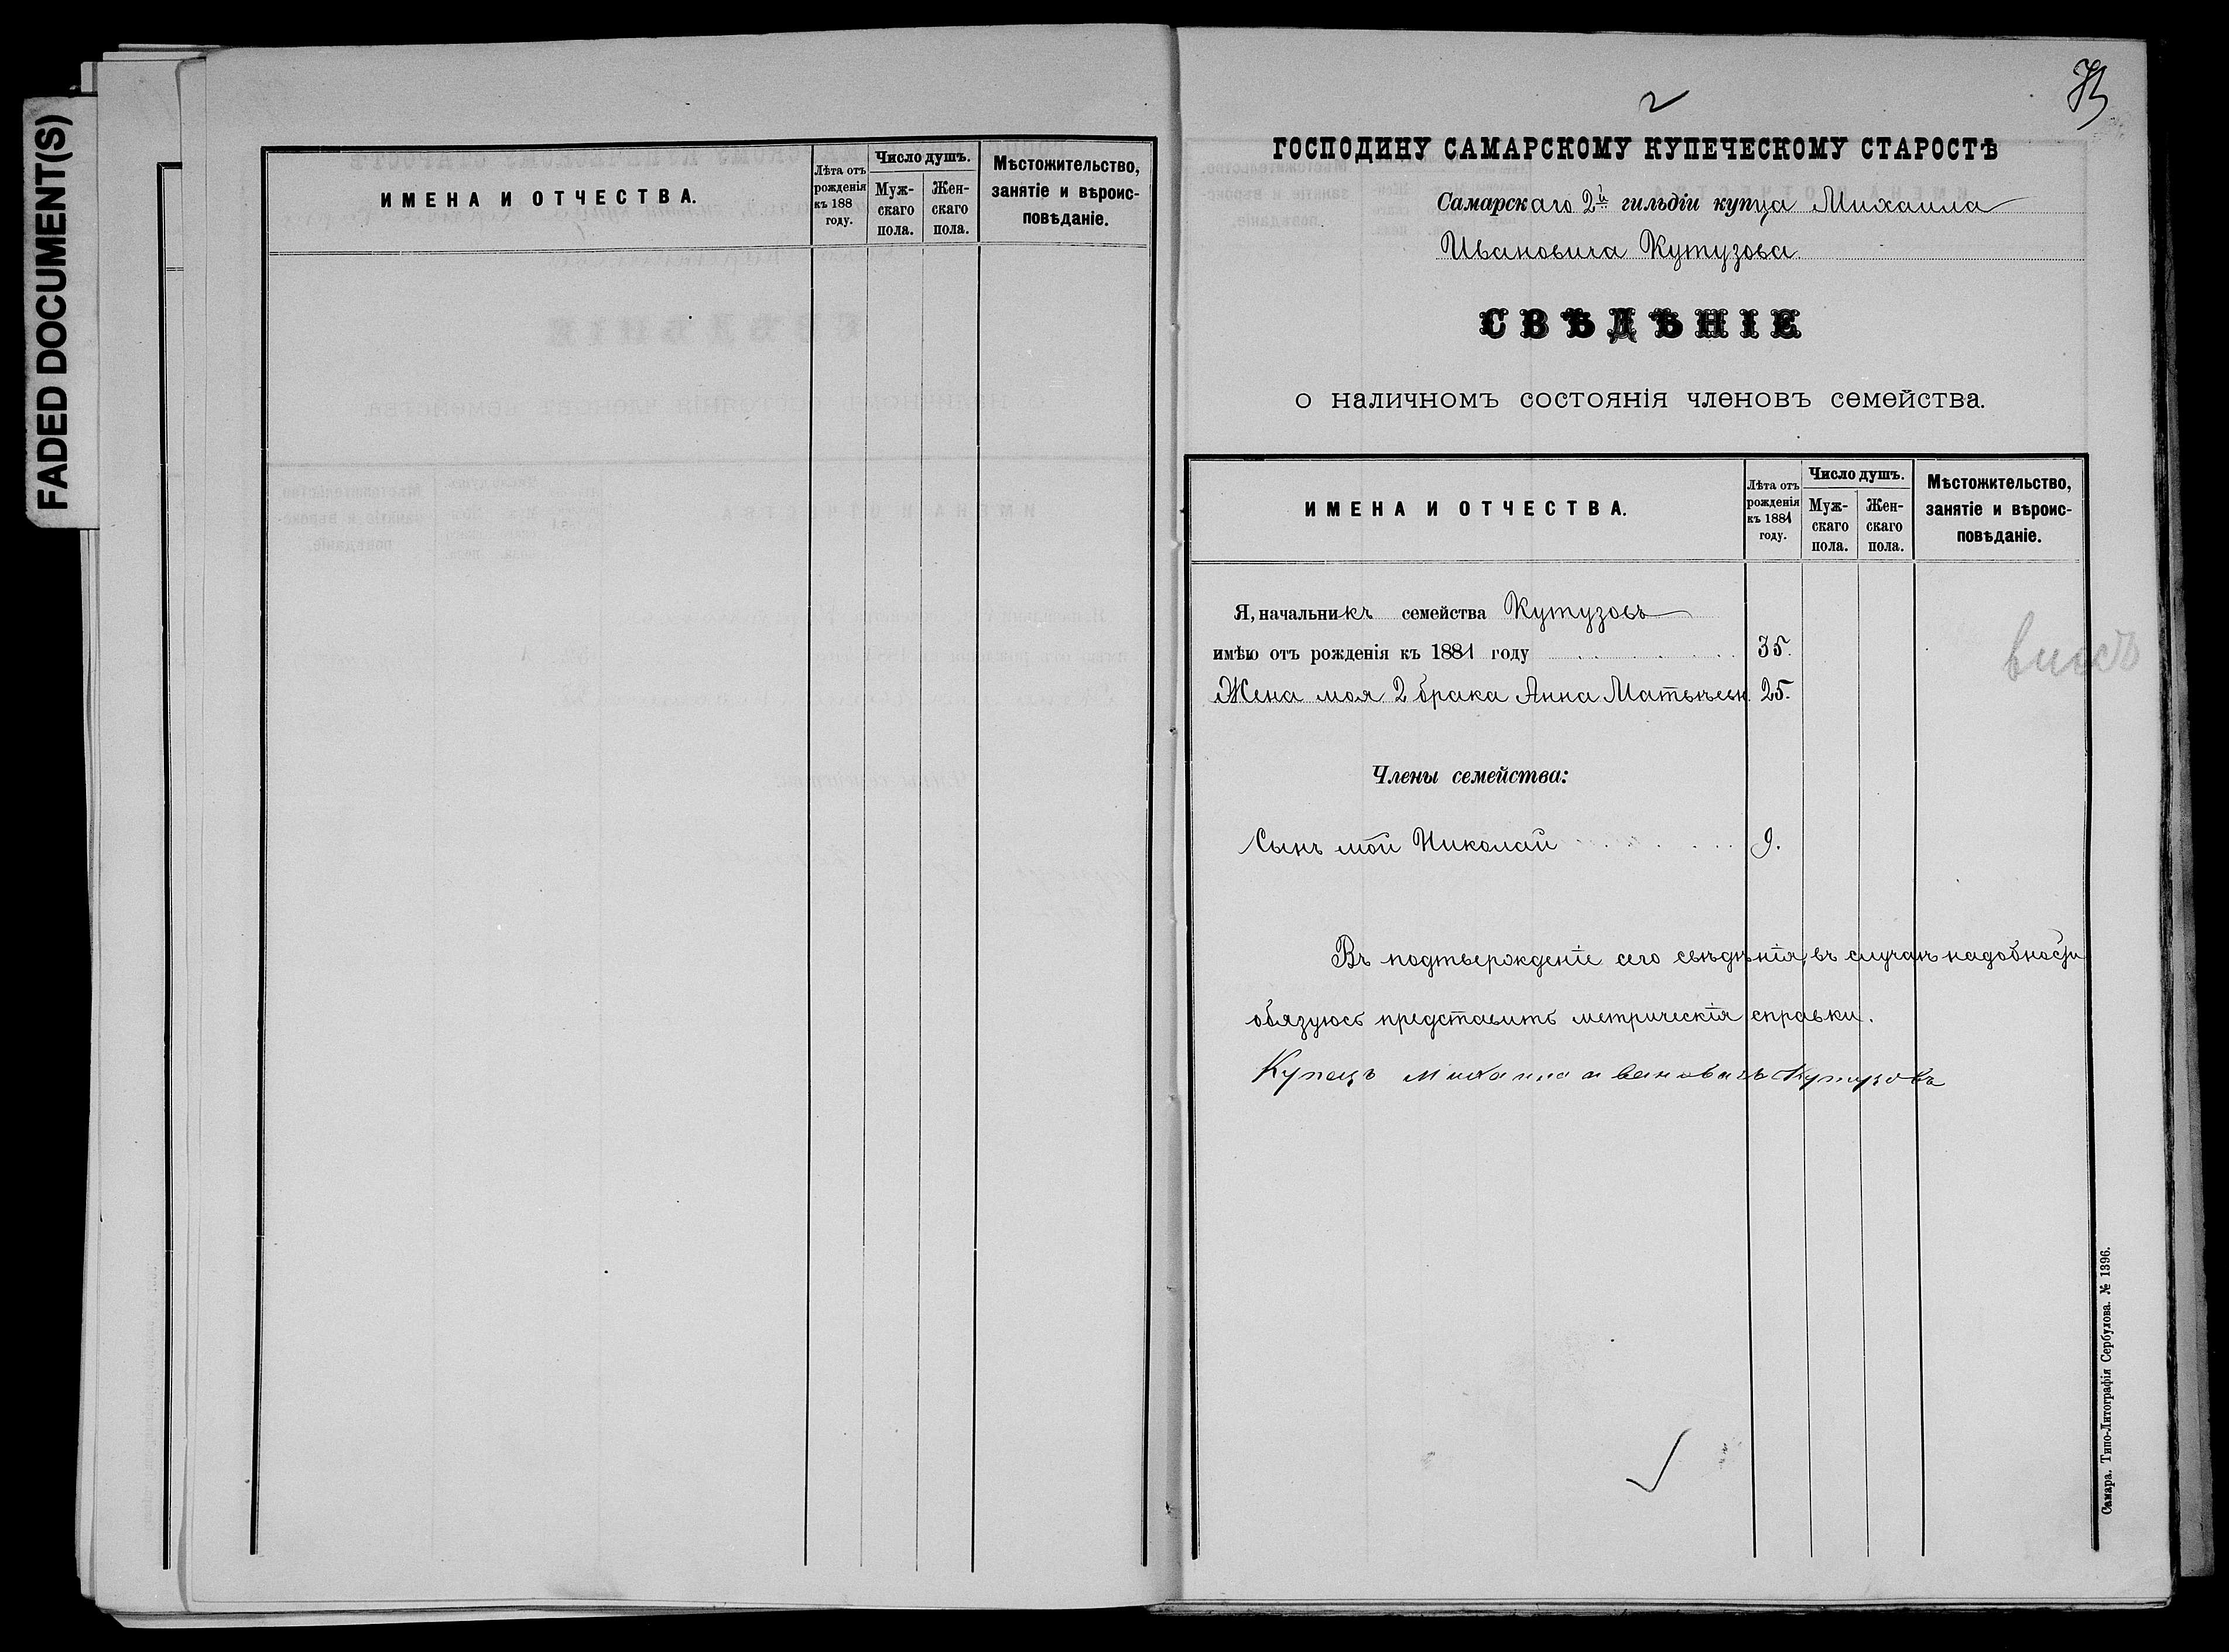 FADED DOCUMENT(S)
ИМЕНА И ОТЧЕСТВА.
Лѣта отъ рожденія къ 188 году.
Число душъ.
Муж-скаго пола.
Жен-скаго пола.
Мѣстожительство, занятіе и вѣроис-повѣданіе.
2
ГОСПОДИНУ САМАРСКОМУ КУПЕЧЕСКОМУ СТАРОСТѢ
Самарскаго 2й гильдіи купца Михаила
Ивановича Кутузова
СВѢДѢНІЕ
о наличномъ состоянія членовъ семейства.
ИМЕНА И ОТЧЕСТВА.
Лѣта отъ рожденія къ 1881 году.
Число душъ.
Муж-скаго пола.
Жен-скаго пола.
Мѣстожительство, занятіе и вѣроис-повѣданіе.
Я, начальникъ семейства Кутузовъ
имѣю отъ рожденія къ 1881 году 35.
Жена моя 2 брака Анна Матвѣевн. 25.
Члены семейства:
Сынъ мой Николай 9.
Въ подтвержденіе сего свѣдѣнія, въ случаѣ надобности
обязуюсь представить метрическія справки.
Купецъ Михаила ивановичъ Кутузовъ
Самара. Типо-Литографія Сербулова. № 1396.